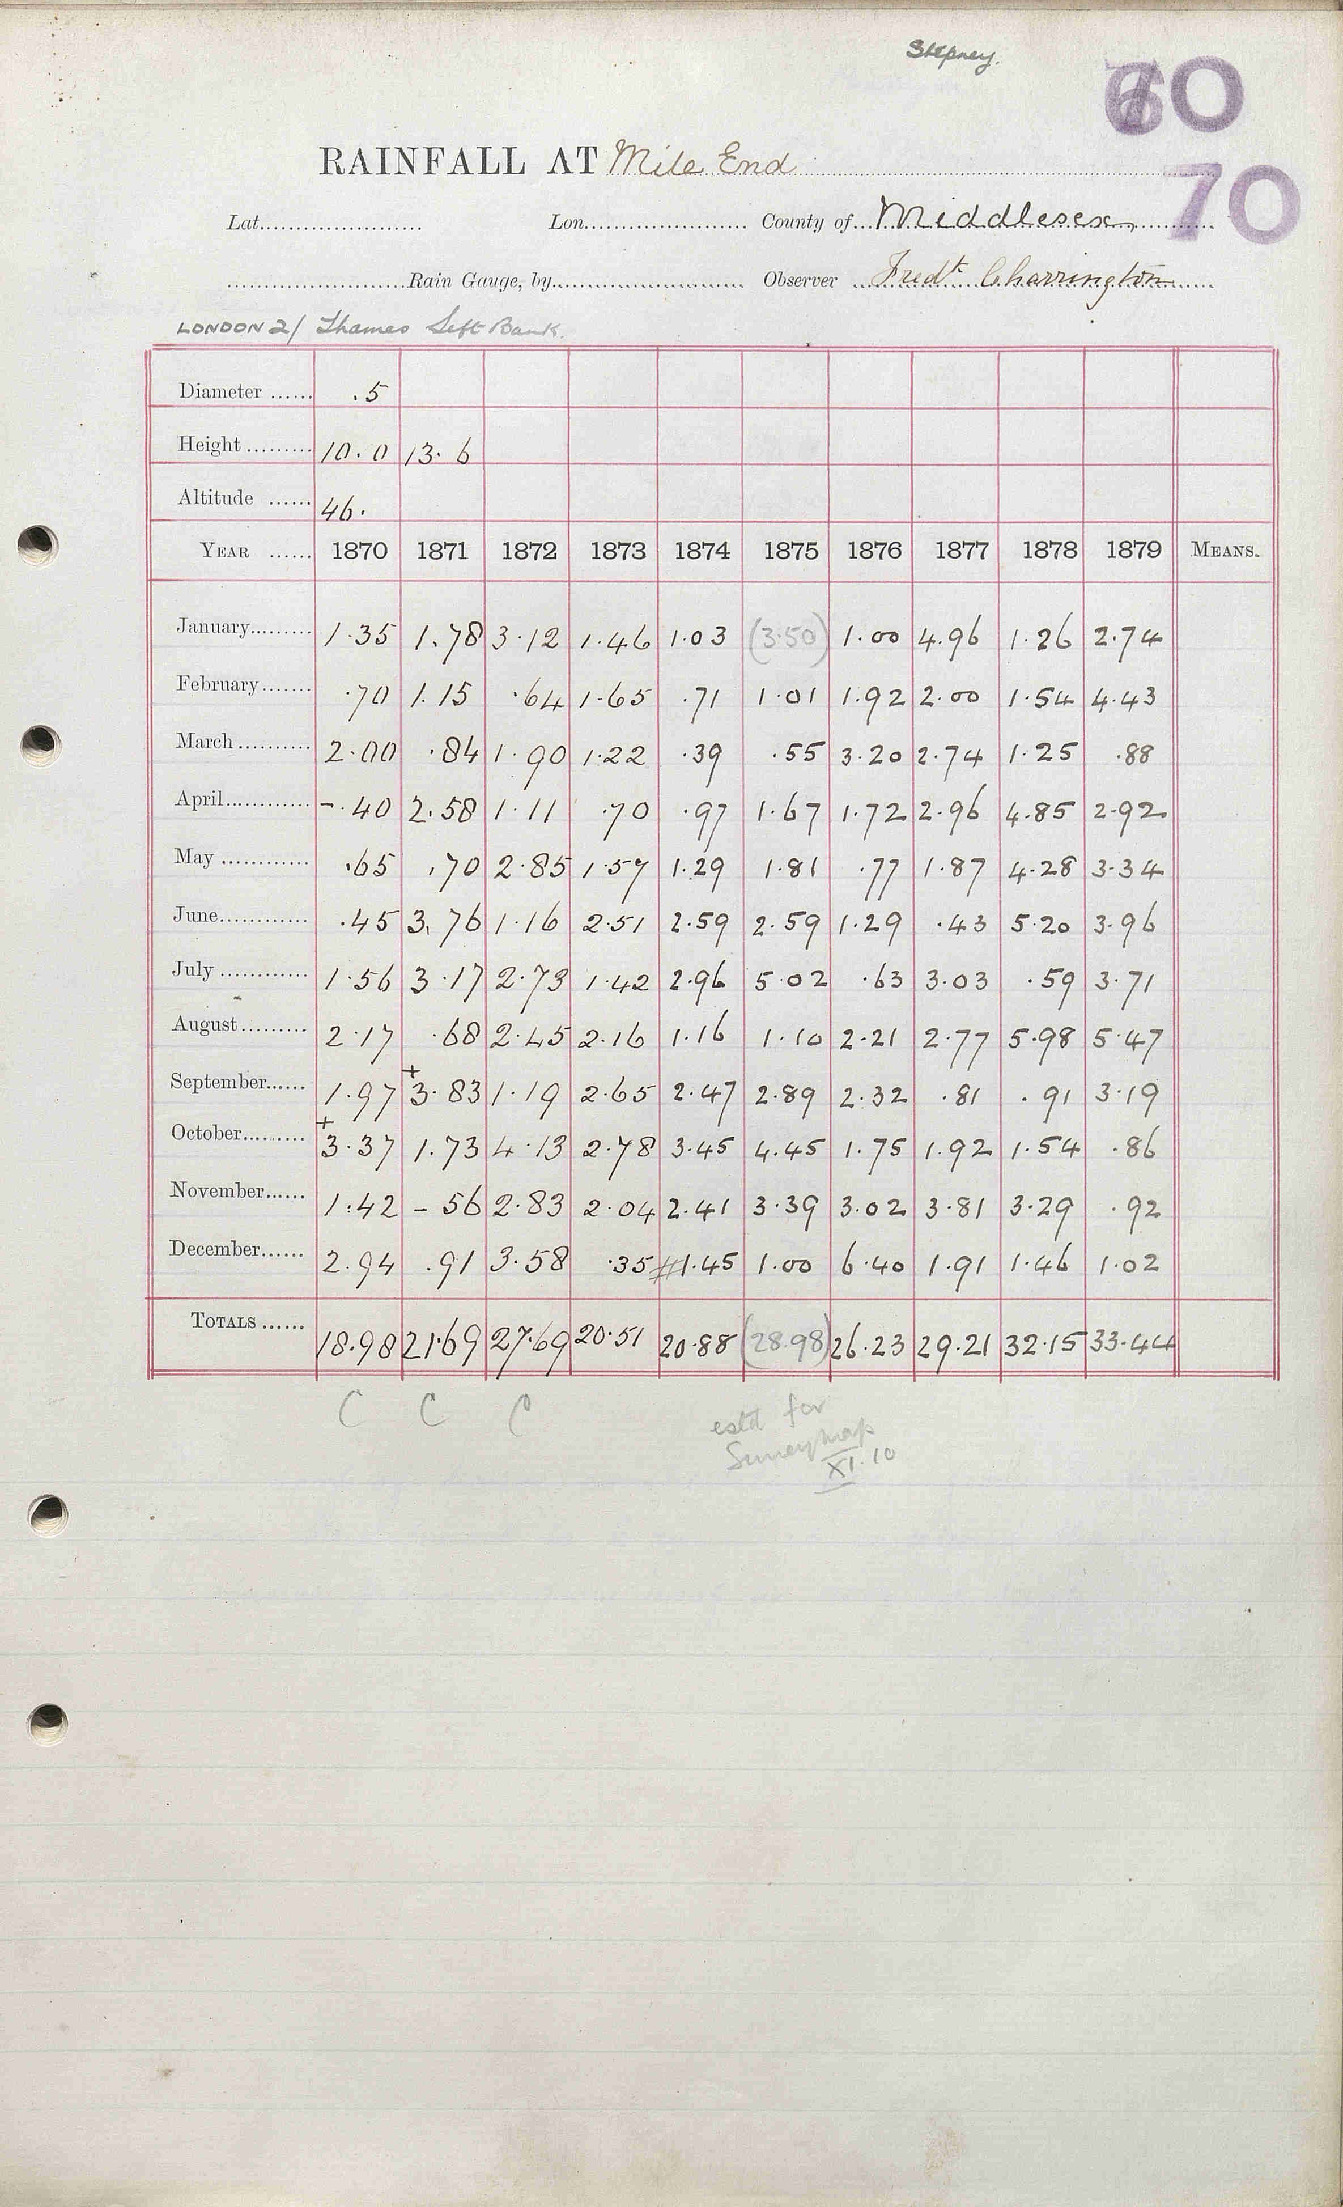 Stepney.
60
RAINFALL AT Mile End
70
Lat. Lon. County of Middlesex
Rain Gauge, by Observer Fredk. Charrington
LONDON 2/ Thames Left Bank.
Diameter ...... .5
Height ......... 10.0 13.6
Altitude ...... 46.
YEAR ...... 1870 1871 1872 1873 1874 1875 1876 1877 1878 1879 MEANS.
January......... 1.35 1.78 3.12 1.46 1.03 (3.50) 1.00 4.96 1.26 2.74
February....... .70 1.15 .64 1.65 .71 1.01 1.92 2.00 1.54 4.43
March.......... 2.00 .84 1.90 1.22 .39 .55 3.20 2.74 1.25 .88
April............ -.40 2.58 1.11 .70 .97 1.67 1.72 2.96 4.85 2.92
May ............ .65 .70 2.85 1.57 1.29 1.81 .77 1.87 4.28 3.34
June............ .45 3.76 1.16 2.51 2.59 2.59 1.29 .43 5.20 3.96
July ............ 1.56 3.17 2.73 1.42 2.96 5.02 .63 3.03 .59 3.71
August......... 2.17 .68 2.45 2.16 1.16 1.10 2.21 2.77 5.98 5.47
September...... 1.97 +3.83 1.19 2.65 2.47 2.89 2.32 .81 .91 3.19
October......... +3.37 1.73 4.13 2.78 3.45 4.45 1.75 1.92 1.54 .86
November...... 1.42 - 56 2.83 2.04 2.41 3.39 3.02 3.81 3.29 .92
December...... 2.94 .91 3.58 .35 #1.45 1.00 6.40 1.91 1.46 1.02
TOTALS ...... 18.98 21.69 27.69 20.51 20.88 (28.98) 26.23 29.21 32.15 33.44
C C C
estd for
Surrey map
XI.10